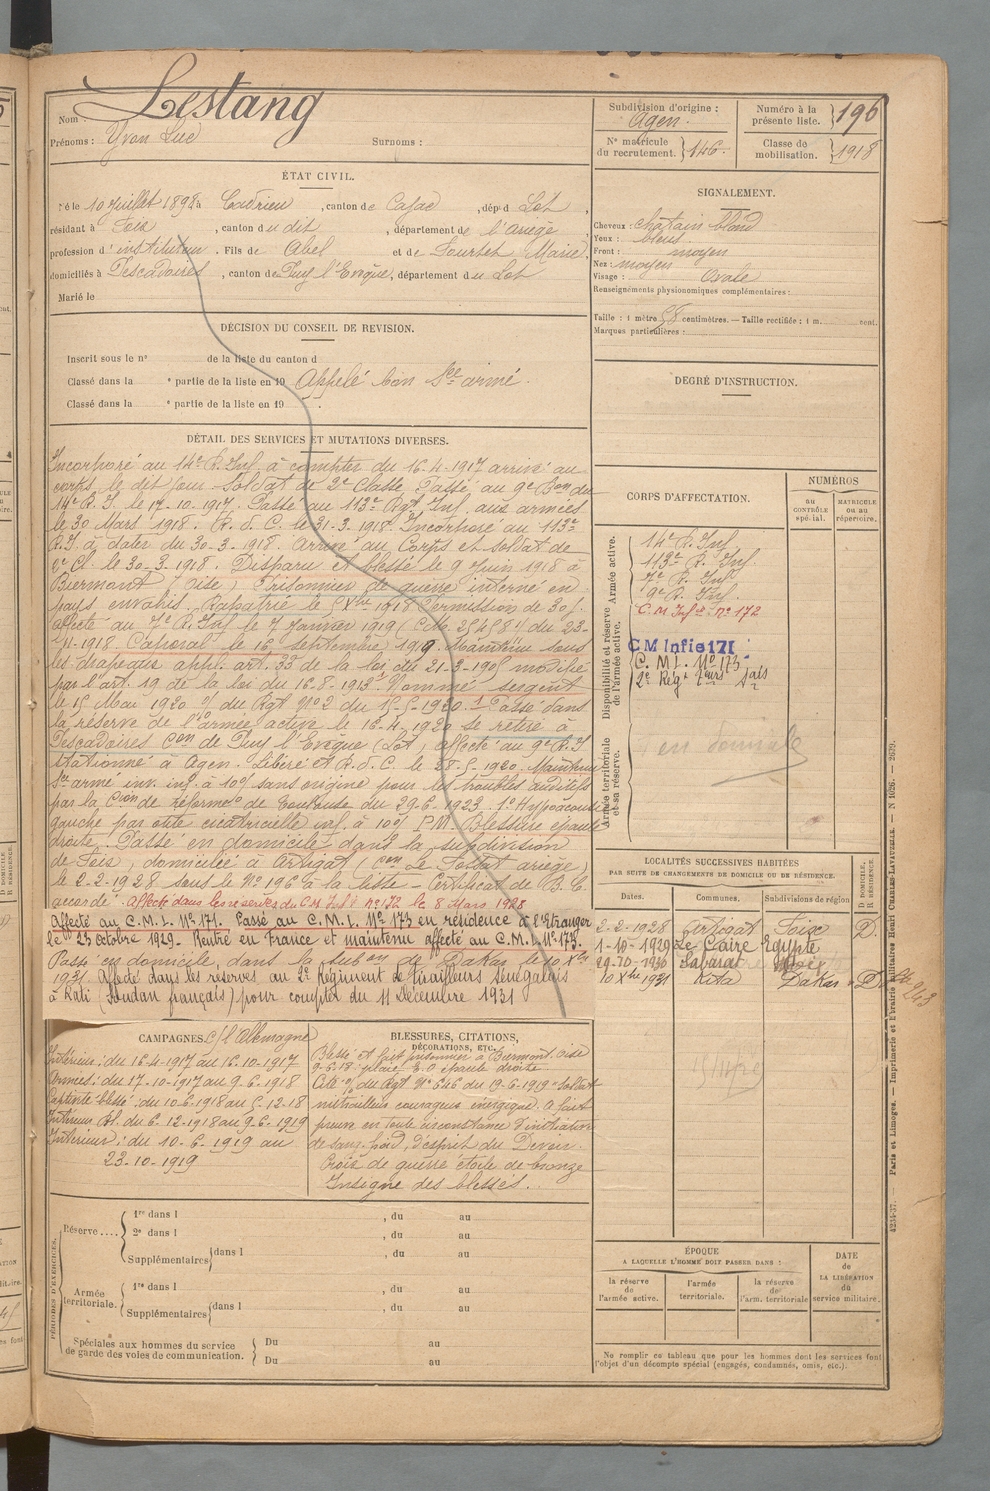 Lestang
Nom :
Prénoms : Yvon Luc Surnoms :
ÉTAT CIVIL.
Né le 10 Juillet 1898 à Cadrieu, canton de Cajac, dép^t d Lot,
résidant à Foix, canton du dit, département de l'ariège
profession d'instituteur. Fils de Abel et de Fourtet Marie,
domiciliés à Pescadoires, canton de Puy l'Evêque, département du Lot
Marié le
DÉCISION DU CONSEIL DE REVISION.
Inscrit sous le n° de la liste du canton d
Classé dans la ᵉ partie de la liste en 19 Appelé bon Sce armé.
Classé dans la ᵉ partie de la liste en 19 .
DÉTAIL DES SERVICES ET MUTATIONS DIVERSES.
Incorporé au 14e R. Inf. à compter du 16-4-1917 arrivé au
corps le dit jour Soldat de 2e Classe Passé au 9e Bon du
14e R. I. le 17-10-1917. Passé au 113e Rgt Inf. aux armées
le 30 Mars 1918. R. d. C. le 31-3-1918. Incorporé au 113e
R.I. à dater du 30-3-1918. Arrivé au Corps et soldat de
2e Cl. le 30-3-1918. Disparu et blessé le 9 Juin 1918 à
Biermont (Oise). Prisonnier de guerre interné en
pays envahis. Rapatrié le 5 Xbre 1918 Permission de 30 j.
affecté au 7e R. Inf. le 7 Janvier 1919 (C.M. du 23-
11-1918. Caporal le 16 septembre 1919. Maintenu sous
les drapeaux appl. art. 33 de la loi du 21-3-1905 modifié
par l'art. 19 de la loi du 16-8-1913. Nommé sergent
le 15 Mai 1920 O/ du Rgt N°2 du 15-5-1920. Passé dans
la réserve de l'armée active le 16-4-1920 se retire à
Pescadoires Con de Puy l'Evêque (Lot) affecté au 9e R.I
stationné à Agen. Libéré et R. d. C. le 28-5-1920. Maintenu
Sce armé inv. inf. à 10% sans origine pour les troubles auditifs
par la Cion de réforme de Toulouse du 29-6-1923. 1° Hypoacousie
gauche par otite cicatricielle inf. à 10% P.M. Blessure épaule
droite. Passé en domicile dans la subdivision
de Foix, domicilié à Artigat, Con Le Fossat ariège,
le 2-2-1928 sous le N° 196 à la liste - Certificat de B. C.
accordé. Affecté dans les réserves du C.M. Infie n° 172 le 8 Mars 1928
Affecté au C.M.I. N°171. Passé au C.M.I. N° 173 en résidence à l'Etranger
le 23 octobre 1929. Rentré en France et maintenu affecté au C.M.I. N°173.
Passé en domicile dans la subon de Dakar le 10 Xbre
1931. Affecté dans les réserves au 2e Régiment de tirailleurs Sénégalais
à Kati (Soudan français) pour compter du 11 Décembre 1931
CAMPAGNES. C/ l'Allemagne
Intérieur : du 16-4-1917 au 16-10-1917
Armées : du 17-10-1917 au 9-6-1918
Captivité blessé : du 10-6-1918 au 5-12-18
Intérieur Bl. du 6-12-1918 au 9-6-1919
Intérieur : du 10-6-1919 au
23-10-1919
BLESSURES, CITATIONS,
DÉCORATIONS, ETC.
Blessé et fait prisonnier à Biermont Oise
9-6-18 : plaie E.O épaule droite
Cité O/ du Rgt N° 646 du 19-6-1919 "Soldat
mitrailleur courageux énergique. A fait
preuve en toute circonstance d'initiative
de sang-froid, d'esprit du Devoir.
Croix de guerre étoile de bronze
Insigne des blessés.
PÉRIODES D'EXERCICES.
Réserve....
1re dans l , du au
2e dans l , du au
Supplémentaires dans l , du au
Armée territoriale.
1re dans l , du au
Supplémentaires dans l , du au
Spéciales aux hommes du service de garde des voies de communication.
Du au
Du au
Subdivision d'origine :
Agen.
N° matricule du recrutement. 146.
Numéro à la présente liste. 196
Classe de mobilisation. 1918
SIGNALEMENT.
Cheveux : châtain blond
Yeux : bleus
Front : moyen
Nez : moyen
Visage : Ovale
Renseignements physionomiques complémentaires :
Taille : 1 mètre 58 centimètres. — Taille rectifiée : 1 m. cent.
Marques particulières :
DEGRÉ D'INSTRUCTION.
CORPS D'AFFECTATION.
NUMÉROS
AU CONTRÔLE spécial.
MATRICULE ou au répertoire.
Armée active.
14e R. Inf.
113e R. Inf.
7e R. Inf.
9e R. Inf.
Disponibilité et réserve de l'armée active.
C.M. Infie n° 172
C M Infie 171
C. M. I. N° 173
2e Régt Tirs Sais
Armée territoriale et sa réserve.
en domicile
LOCALITÉS SUCCESSIVES HABITÉES
PAR SUITE DE CHANGEMENTS DE DOMICILE OU DE RÉSIDENCE.
Dates. Communes. Subdivisions de région
D DOMICILE. R RÉSIDENCE.
2-2-1928 Artigat Foix D.
1-10-1929 Le Caire Egypte
29-10-1930 Sabarat Foix
10 Xbre 1931 Kita Dakar D
243
ÉPOQUE
A LAQUELLE L'HOMME DOIT PASSER DANS :
la réserve de l'armée active.
l'armée territoriale.
la réserve de l'arm. territoriale
DATE de LA LIBÉRATION du service militaire.
No remplir ce tableau que pour les hommes dont les services font l'objet d'un décompte spécial (engagés, condamnés, omis, etc.).
4234-37. — Paris et Limoges. — Imprimerie et librairie militaires Henri CHARLES-LAVAUZELLE. — N 1026. — 2639.